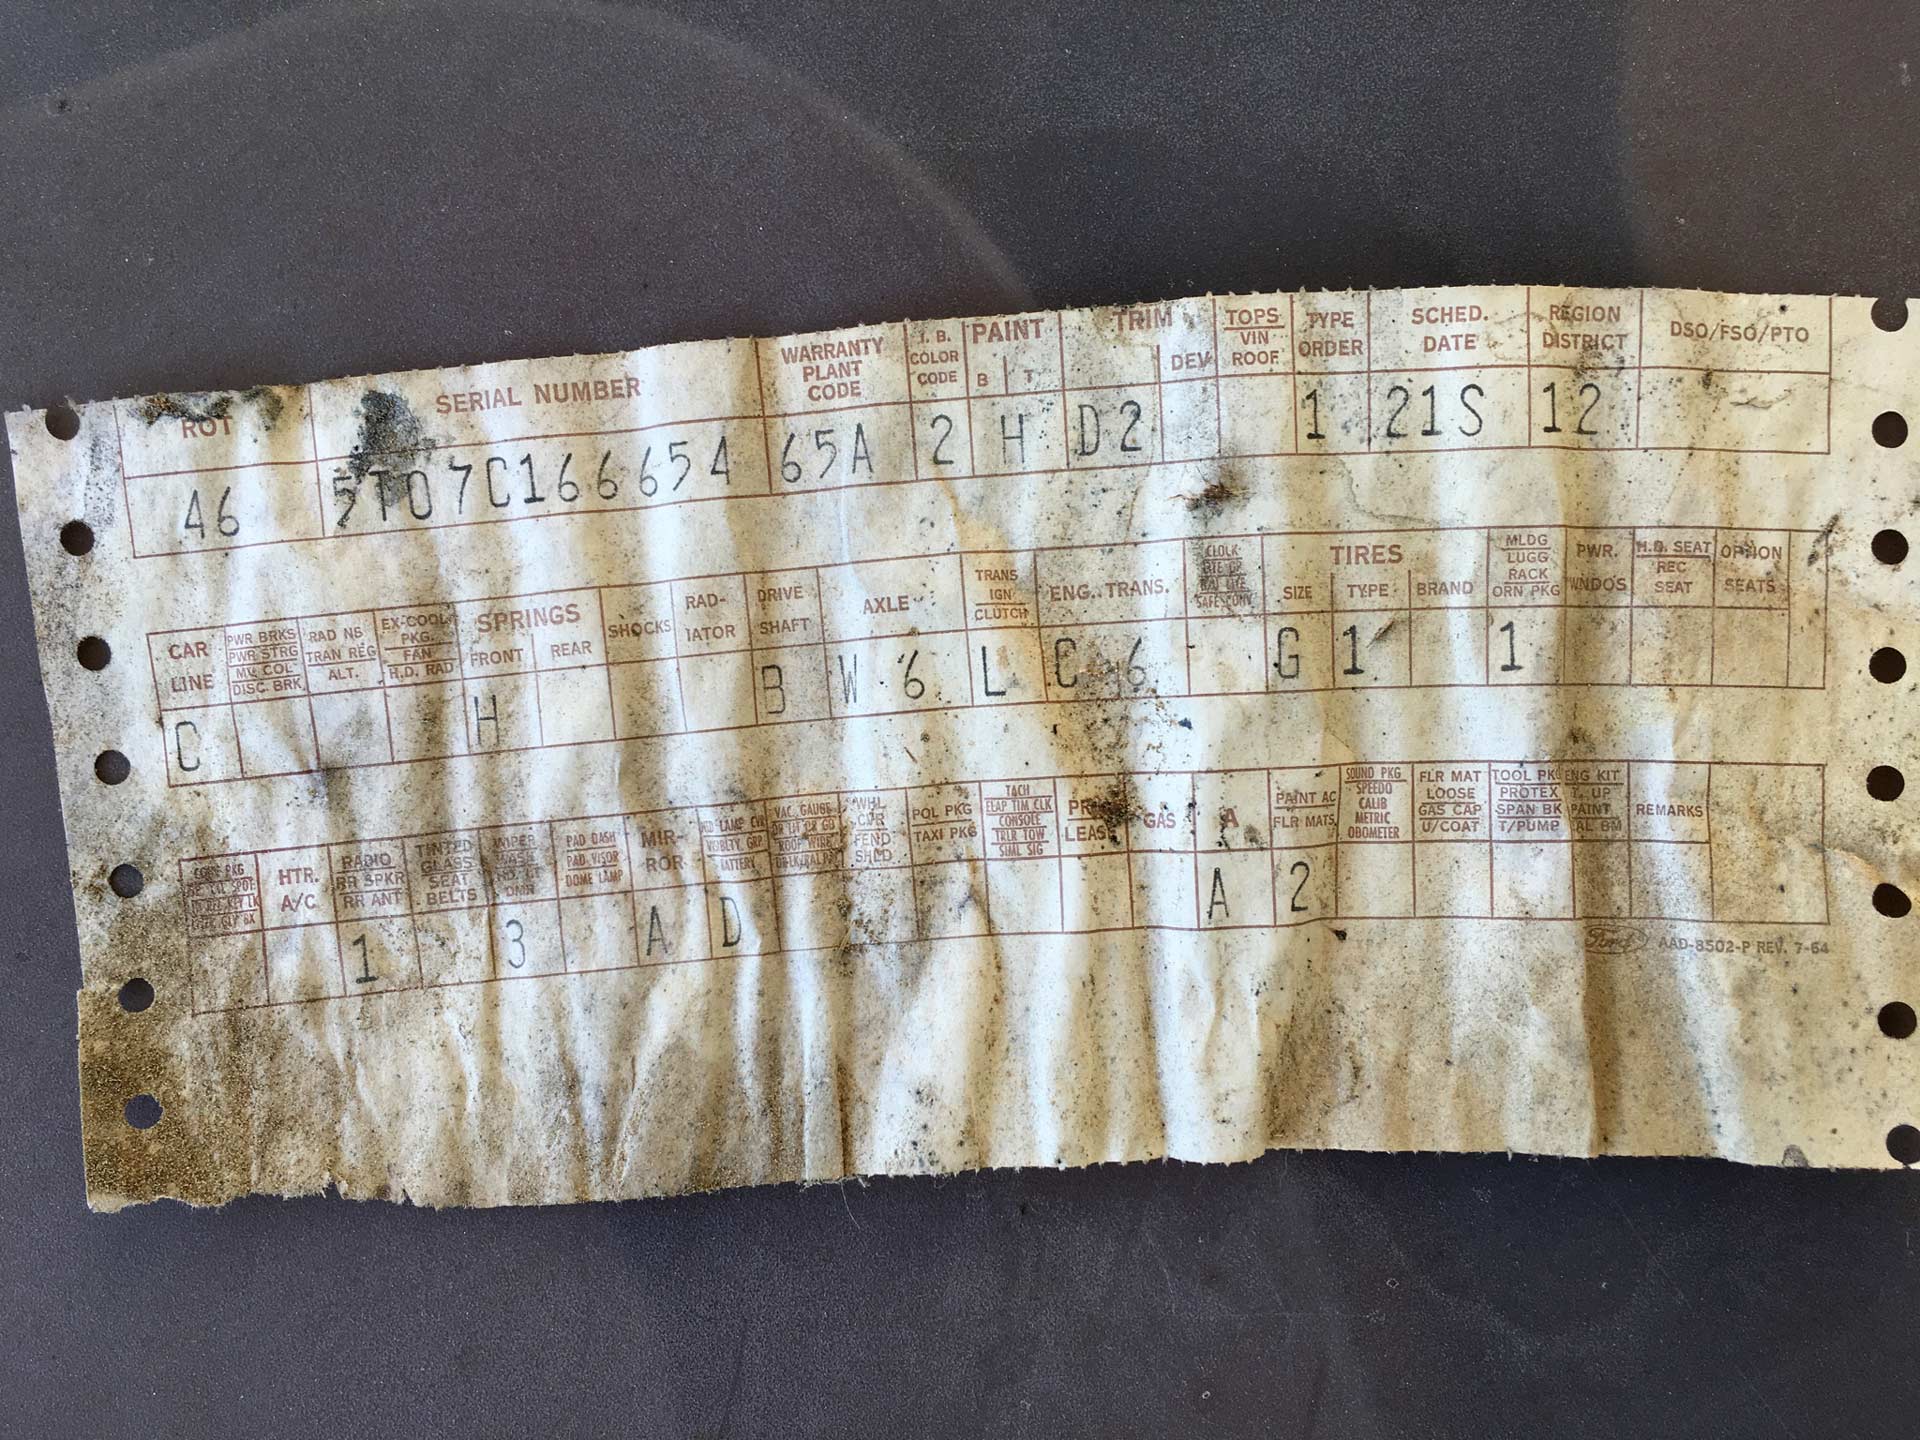 ROT SERIAL NUMBER WARRANTY PLANT CODE I.B. COLOR CODE PAINT B T TRIM DEV TOPS VIN ROOF TYPE ORDER SCHED. DATE REGION DISTRICT DSO/FSO/PTO
46 5T07C166654 65A 2 H D2 1 21S 12
CAR LINE PWR BRKS PWR STRG DISC. BRK. RAD NS TRAN REG ALT. EX-COOL PKG. FAN H.D. RAD SPRINGS FRONT REAR SHOCKS RAD- IATOR DRIVE SHAFT AXLE TRANS IGN CLUTCH ENG. TRANS. CLOCK TIRES SIZE TYPE BRAND MLDG LUGG RACK ORN PKG PWR. WNDOS H.D. SEAT REC SEAT OPTION SEATS
C H B W 6 L C 6 G 1 1
HTR. A/C RADIO RR SPKR RR ANT TINTED GLASS SEAT BELTS WIPER PAD DASH PAD. VISOR DOME LAMP MIR- ROR BATTERY VAC. GAUGE WHL CVR FEND SHLD POL PKG TAXI PKG TACH ELAP TIM CLK CONSOLE TRLR TOW SIML SIG LEASE GAS A PAINT AC FLR MATS SOUND PKG SPEEDO CALIB METRIC ODOMETER FLR MAT LOOSE GAS CAP U/COAT TOOL PKG PROTEX SPAN BK T/PUMP ENG KIT T. UP PAINT REMARKS
1 3 A D A 2
Ford AAD-8502-P REV. 7-64